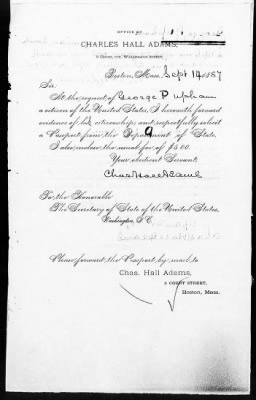 OFFICE OF
CHARLES HALL ADAMS,
Boston, Mass. Sept 14, 1887
Sir:
At the request of George P Upham
a citizen of the United States, I herewith forward
evidence of his citizenship, and respectfully solicit
a Passport from the Department of State.
I also inclose the usual fee of $5.00.
Your obedient Servant
Chas Hall Adams
To the Honorable
The Secretary of State of the United States,
Washington, D.C.
Please forward the Passport by mail to
Chas. Hall Adams,
5 COURT STREET,
Boston, Mass.